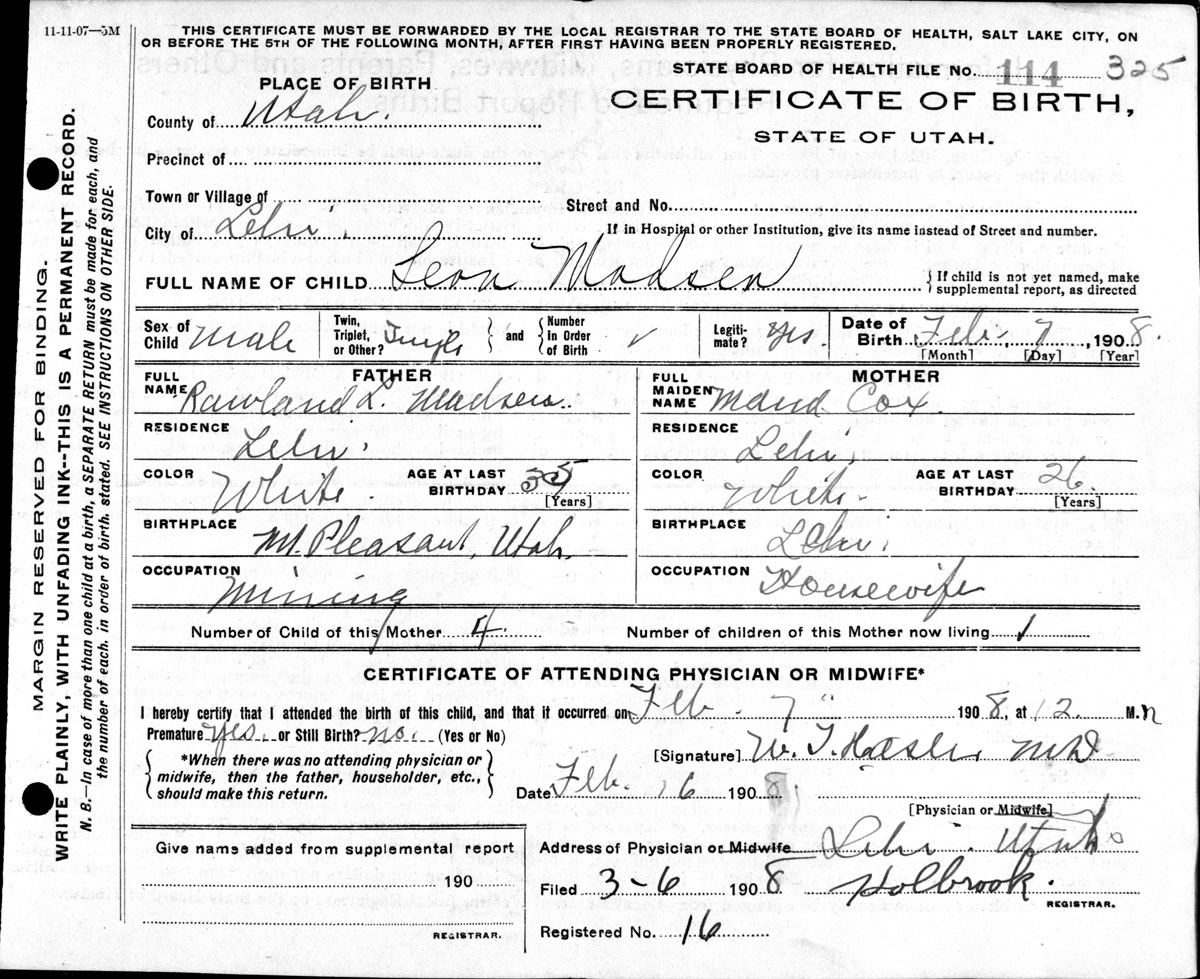 11-11-07—5M
THIS CERTIFICATE MUST BE FORWARDED BY THE LOCAL REGISTRAR TO THE STATE BOARD OF HEALTH, SALT LAKE CITY, ON
OR BEFORE THE 5TH OF THE FOLLOWING MONTH, AFTER FIRST HAVING BEEN PROPERLY REGISTERED.
STATE BOARD OF HEALTH FILE No. 114 325
PLACE OF BIRTH
CERTIFICATE OF BIRTH,
STATE OF UTAH.
County of Utah.
Precinct of
Town or Village of
Street and No.
City of Lehi.
If in Hospital or other Institution, give its name instead of Street and number.
FULL NAME OF CHILD Madsen
If child is not yet named, make
supplemental report, as directed
Sex of Child Male
Twin, Triplet, or Other? Single and Number In Order of Birth
Legitimate? Yes.
Date of Birth Feb. 7, 1908.
[Month] [Day] [Year]
FATHER
FULL NAME Rawland L. Madsen.
MOTHER
FULL MAIDEN NAME Maud Cox.
RESIDENCE Lehi.
RESIDENCE Lehi.
COLOR White. AGE AT LAST BIRTHDAY 35 [Years]
COLOR White. AGE AT LAST BIRTHDAY 26 [Years]
BIRTHPLACE Mt. Pleasant, Utah.
BIRTHPLACE Lehi.
OCCUPATION Mining
OCCUPATION Housewife
Number of Child of this Mother 4.
Number of children of this Mother now living 1
CERTIFICATE OF ATTENDING PHYSICIAN OR MIDWIFE*
I hereby certify that I attended the birth of this child, and that it occurred on Feb. 7" 1908, at 12. M.
Premature yes. or Still Birth? no. (Yes or No)
*When there was no attending physician or
midwife, then the father, householder, etc.,
should make this return.
[Signature] W. T. Hasler, MD
Date Feb. 16 1908.
[Physician or Midwife]
Give name added from supplemental report
190
REGISTRAR.
Address of Physician or Midwife Lehi. Utah
Filed 3-6 1908 Holbrook.
REGISTRAR.
Registered No. 16
MARGIN RESERVED FOR BINDING.
WRITE PLAINLY, WITH UNFADING INK--THIS IS A PERMANENT RECORD.
N. B.—In case of more than one child at a birth, a SEPARATE RETURN must be made for each, and
the number of each, in order of birth, stated. SEE INSTRUCTIONS ON OTHER SIDE.